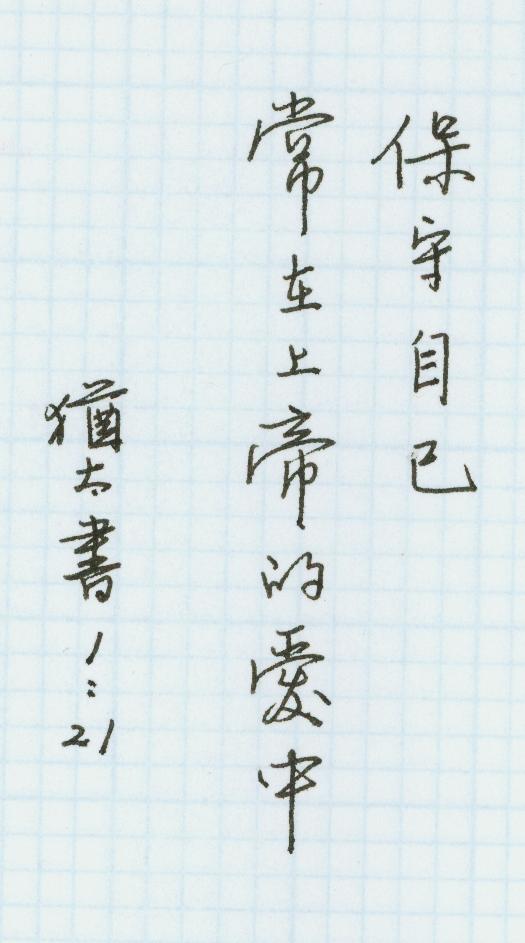 保守自己
常在上帝的愛中
猶太書1:21